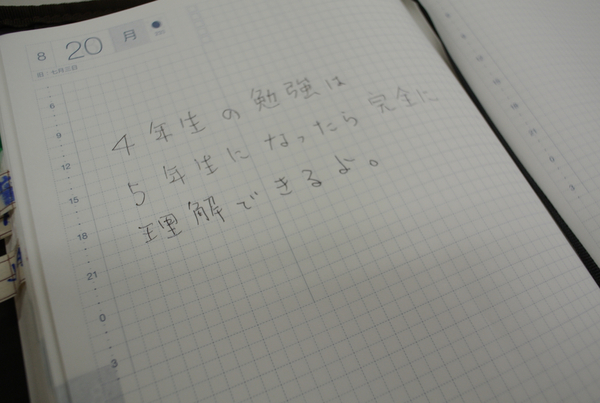 8 20 月
旧・七月三日
4年生の勉強は
5年生になったら完全に
理解できるよ。
6
9
12
15
18
21
0
3